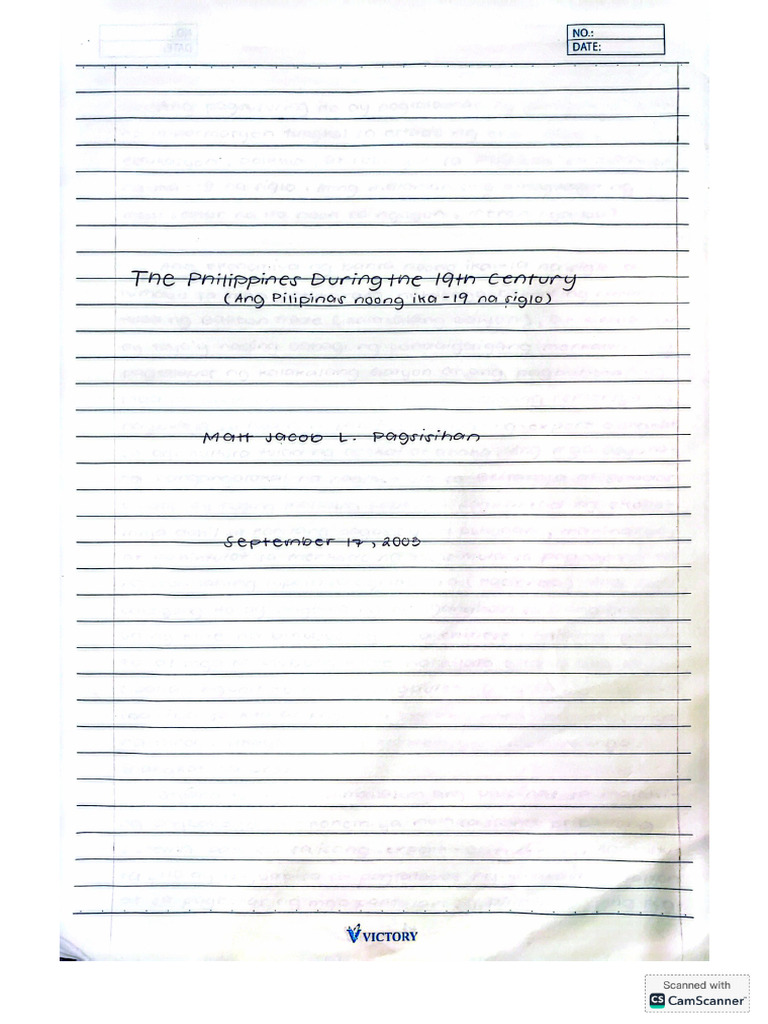 NO.:
DATE:
The Philippines During the 19th Century
(Ang Pilipinas noong ika-19 na siglo)
Matt Jacob L. Pagsisihan
September 17, 2003
VICTORY
Scanned with
CS CamScanner